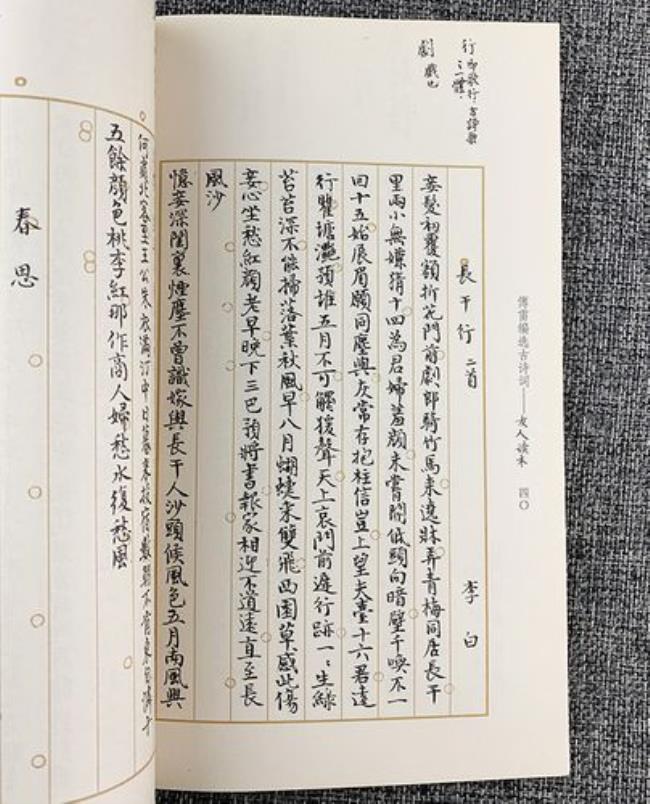 傅雷编选古诗词——友人读本 四〇
行 即歌行，古詩樂
之一體．
劇 戲也
長干行 二首 李白
妾髮初覆額折花門前劇郎騎竹馬來遶牀弄青梅同居長干
里兩小無嫌猜十四為君婦羞顏未嘗開低頭向暗壁千喚不一
回十五始展眉願同塵與灰常存抱柱信豈上望夫臺十六君遠
行瞿塘灩預堆五月不可觸猿聲天上哀門前遲行跡一〻生綠
苔苔深不能掃落葉秋風早八月蝴蝶來雙飛西園草感此傷
妾心坐愁紅顏老早晚下三巴預將書報家相迎不道遠直至長
風沙
憶妾深閨裏煙塵不曾識嫁與長干人沙頭候風色五月南風興
北客至王公朱衣滿汀中日暮來投宿數朝不肯東自憐十
五餘顏色桃李紅那作商人婦愁水復愁風
春思